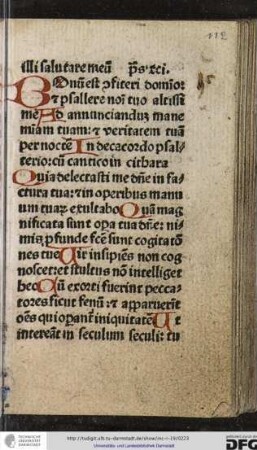 112
illi salutare meū ps̄. xci.
Bonū est ꝯfiteri domīo:
et psallere noī tuo altissi
me Ad annunciandū mane
m̄iam tuam: et veritatem tuā
per noctē In decacordo psal
terio: cū cantico in cithara
Quia delectasti me dn̄e in fac
tura tua: et in operibus manu
um tuaꝝ exultabo Quā mag
nificata sunt oꝑa tua dn̄e: ni
mis ꝓfunde fcē sunt cogitatō
nes tue Uir insipiēs non cog
noscet: et stultus nō intelliget
hec Cū exorti fuerint pecca
tores sicut fenū: et apparuerīt
oēs qui oꝑant̄ iniquitatē Ut
intereāt in seculum seculi: tu
TECHNISCHE UNIVERSITÄT DARMSTADT
Universitäts- und Landesbibliothek Darmstadt
DFG